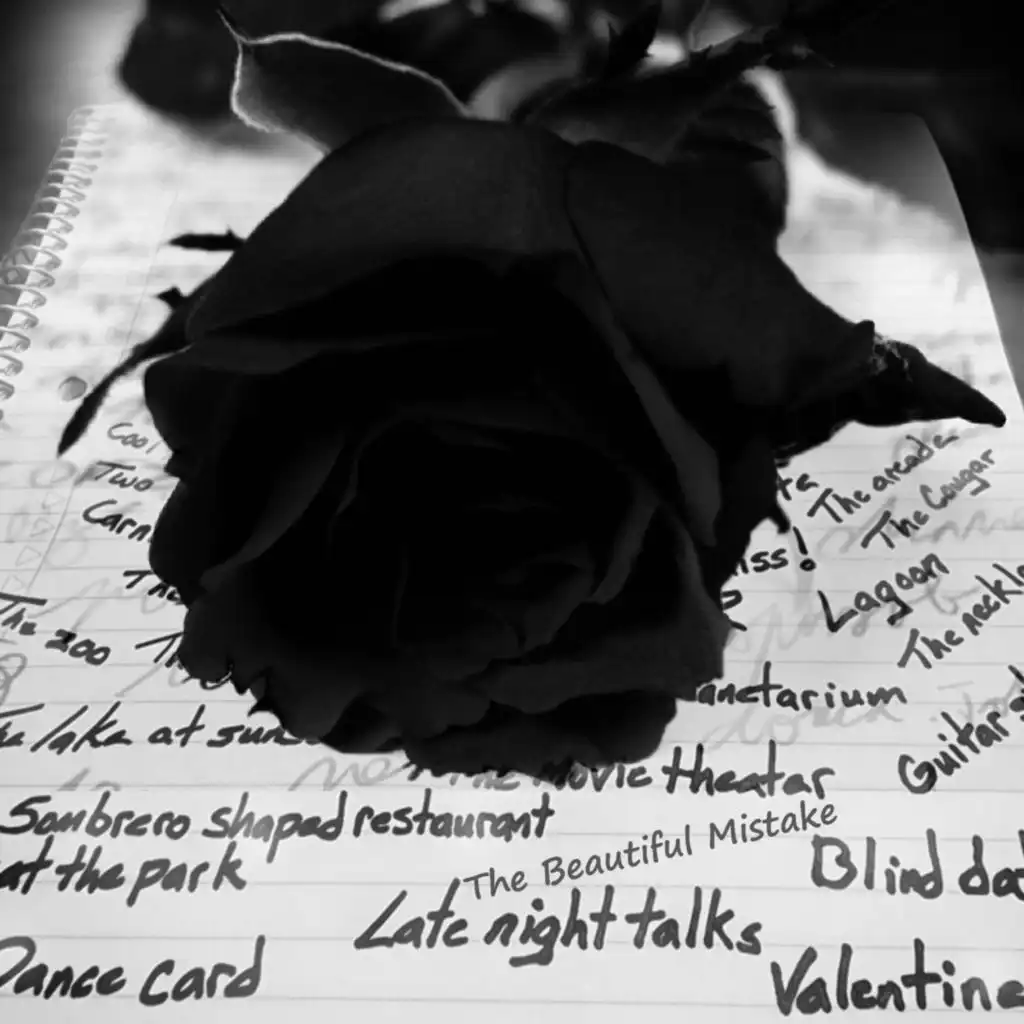 Cool
Two
Carn
The arcade
The Cougar
iss!
Lagoon
The neckl
The zoo
anetarium
The lake at sun
Guitar
The Movie theatar
Sombrero shaped restaurant
The Beautiful Mistake
at the park
Blind da
Late night talks
Dance card
Valentine